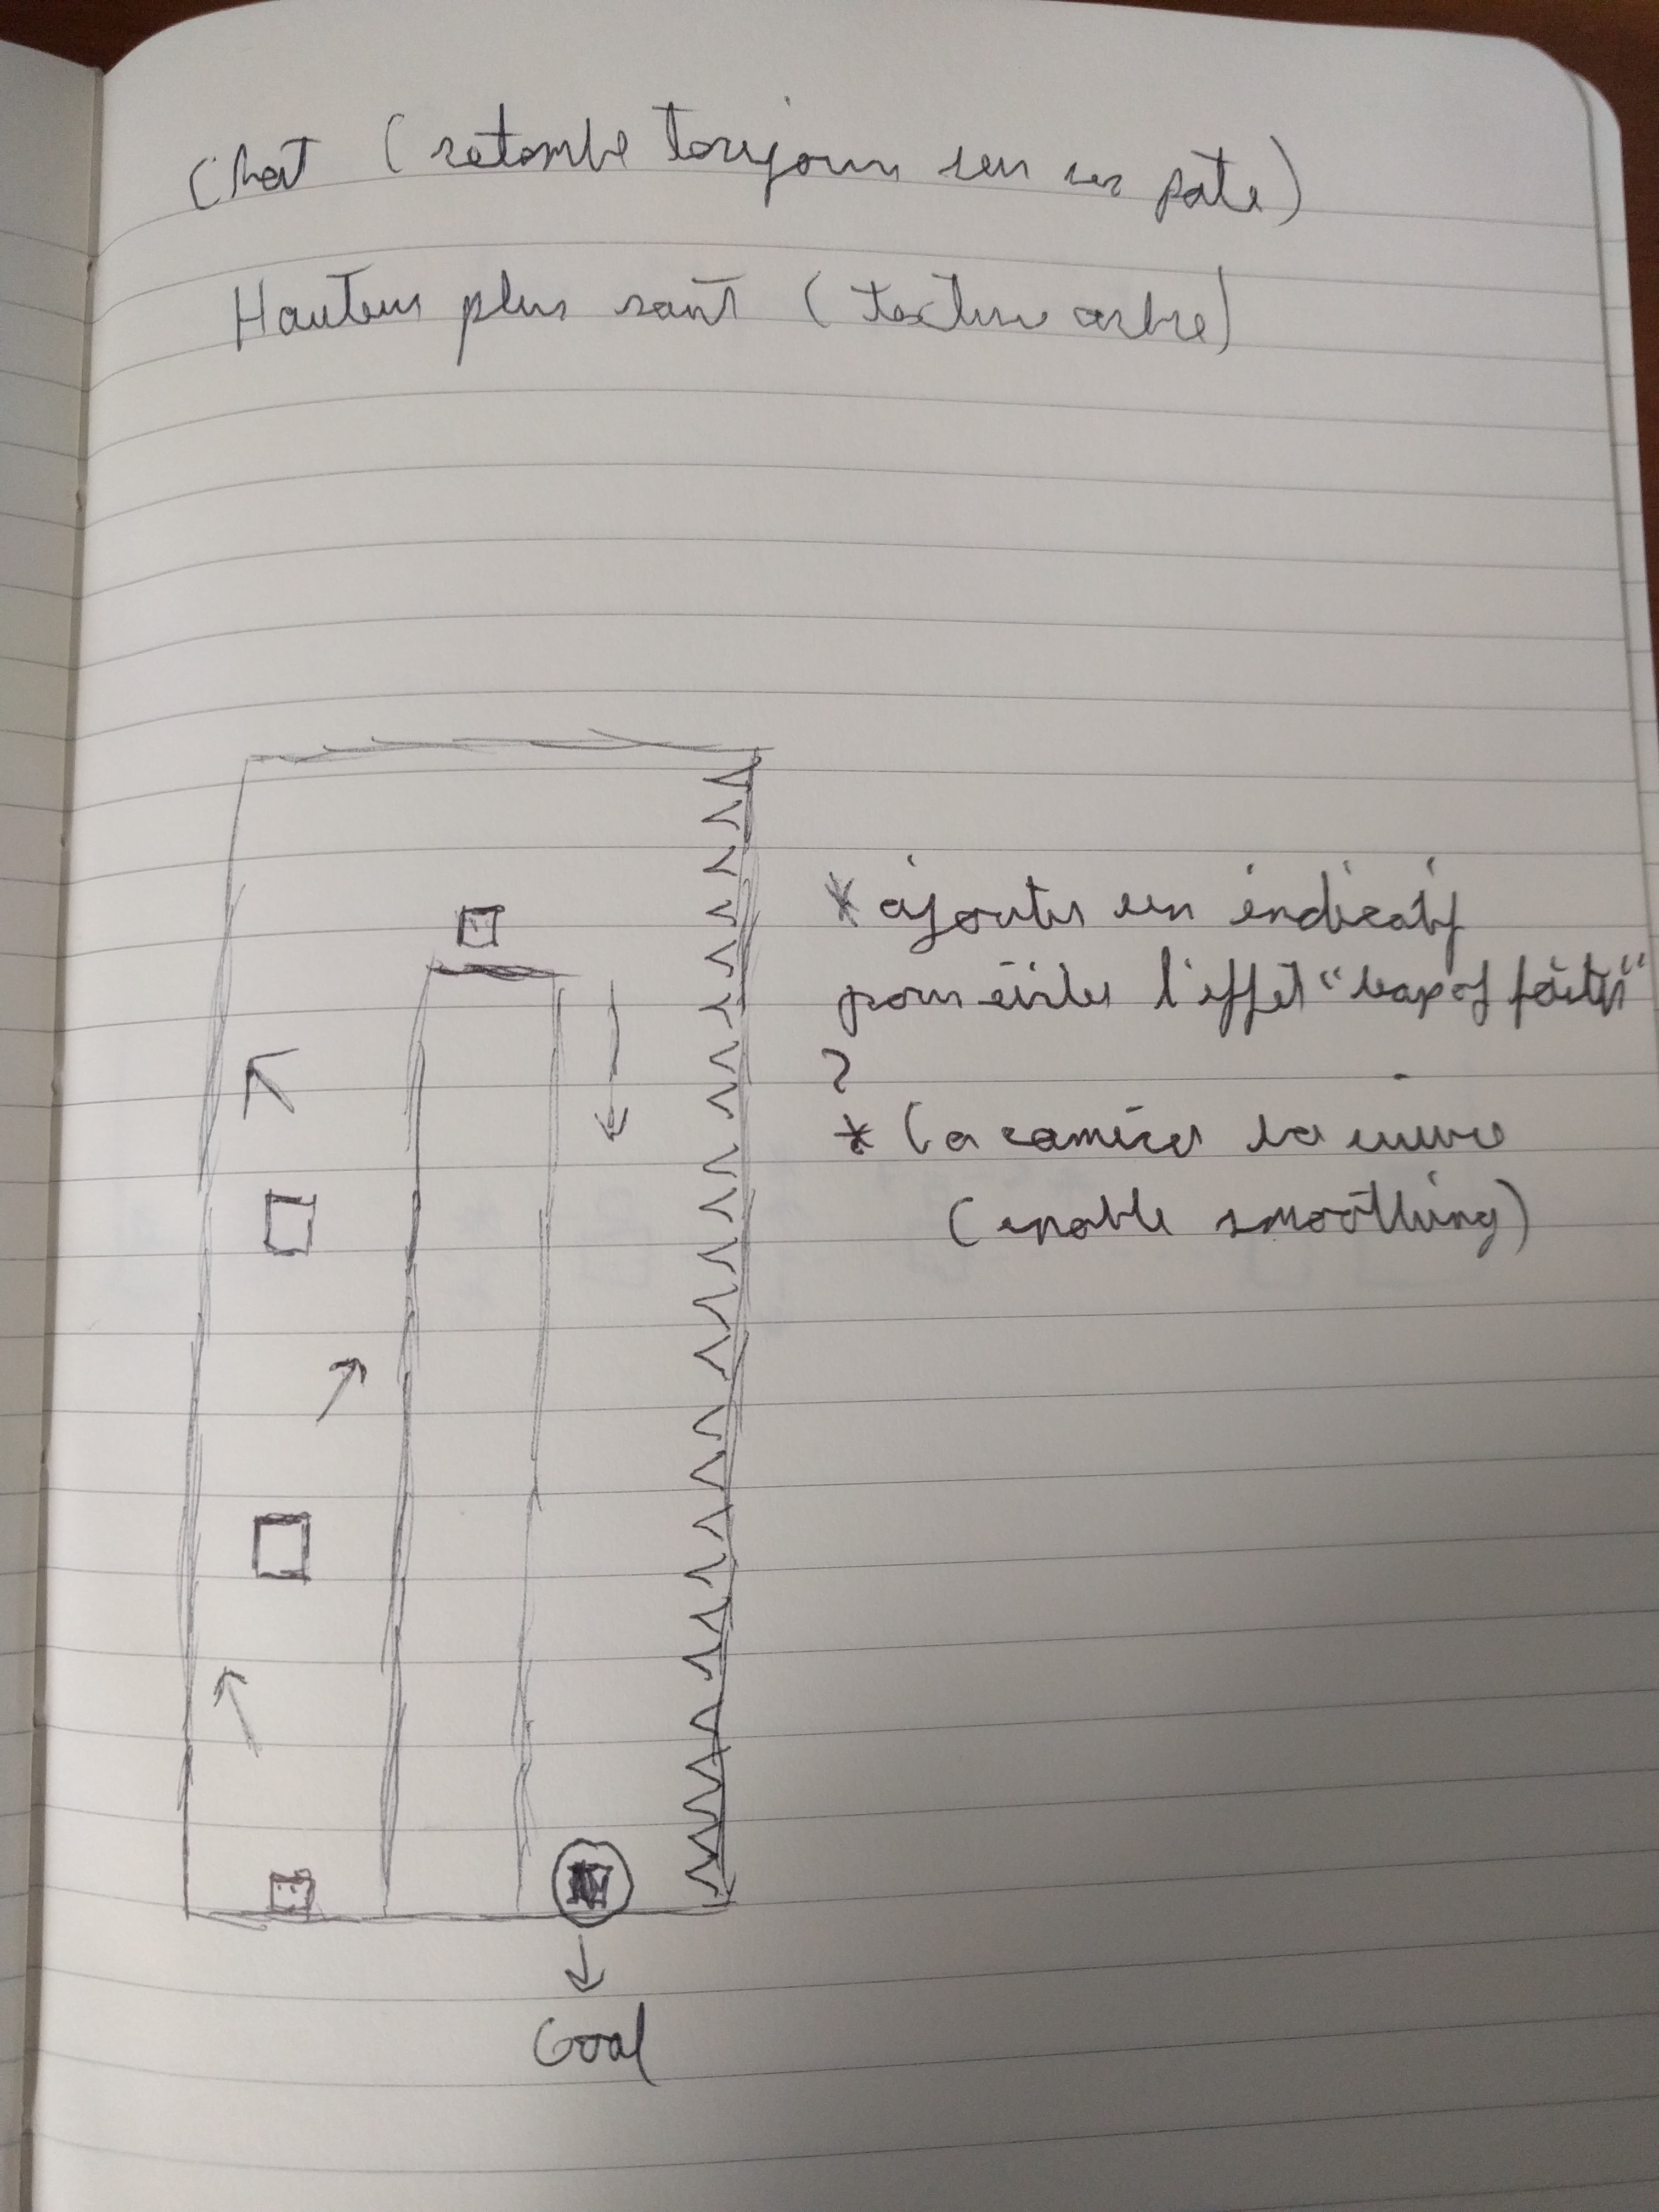 Chat (retombe toujours sur ses pate)
Hauteur plus sant (texture arbre)
* ajouter un indicatif
pour éviter l'effet "leap of faith"
?
* la caméra la suivre
(enable smoothing)
Goal